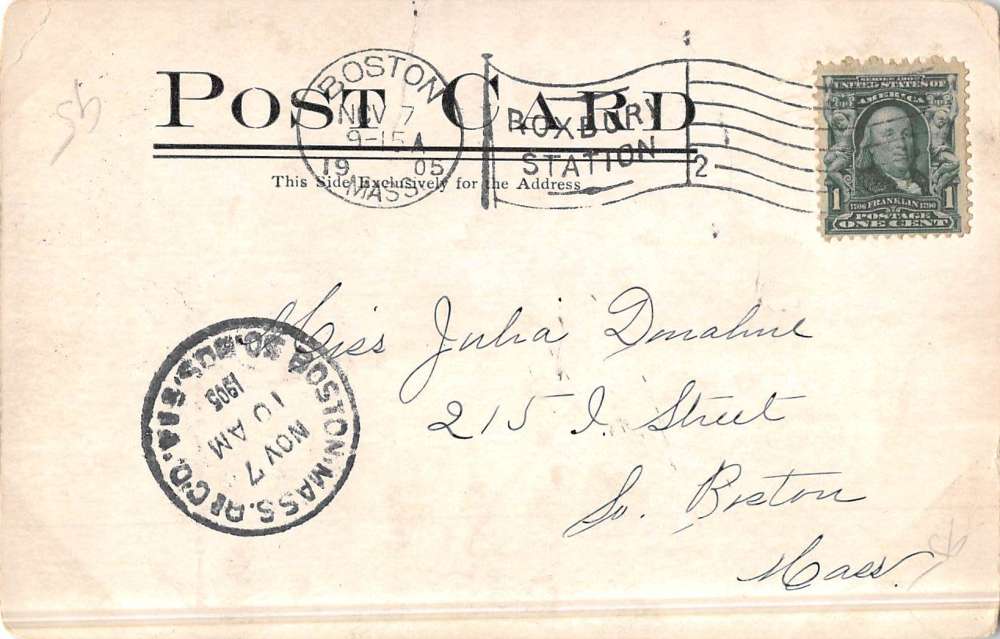 POST CARD
This Side Exclusively for the Address
BOSTON
NOV 7
9-15A
19 05
MASS.
ROXBURY
STATION
2
SERIES 1902
UNITED STATES OF
AMERICA
1 1
1706 FRANKLIN 1790
POSTAGE
ONE CENT
Miss Julia Donahue
215 I. Street
So. Boston
Mass.
BOSTON, MASS. REC'D.
SO. BOS.
NOV 7
10 AM
1905